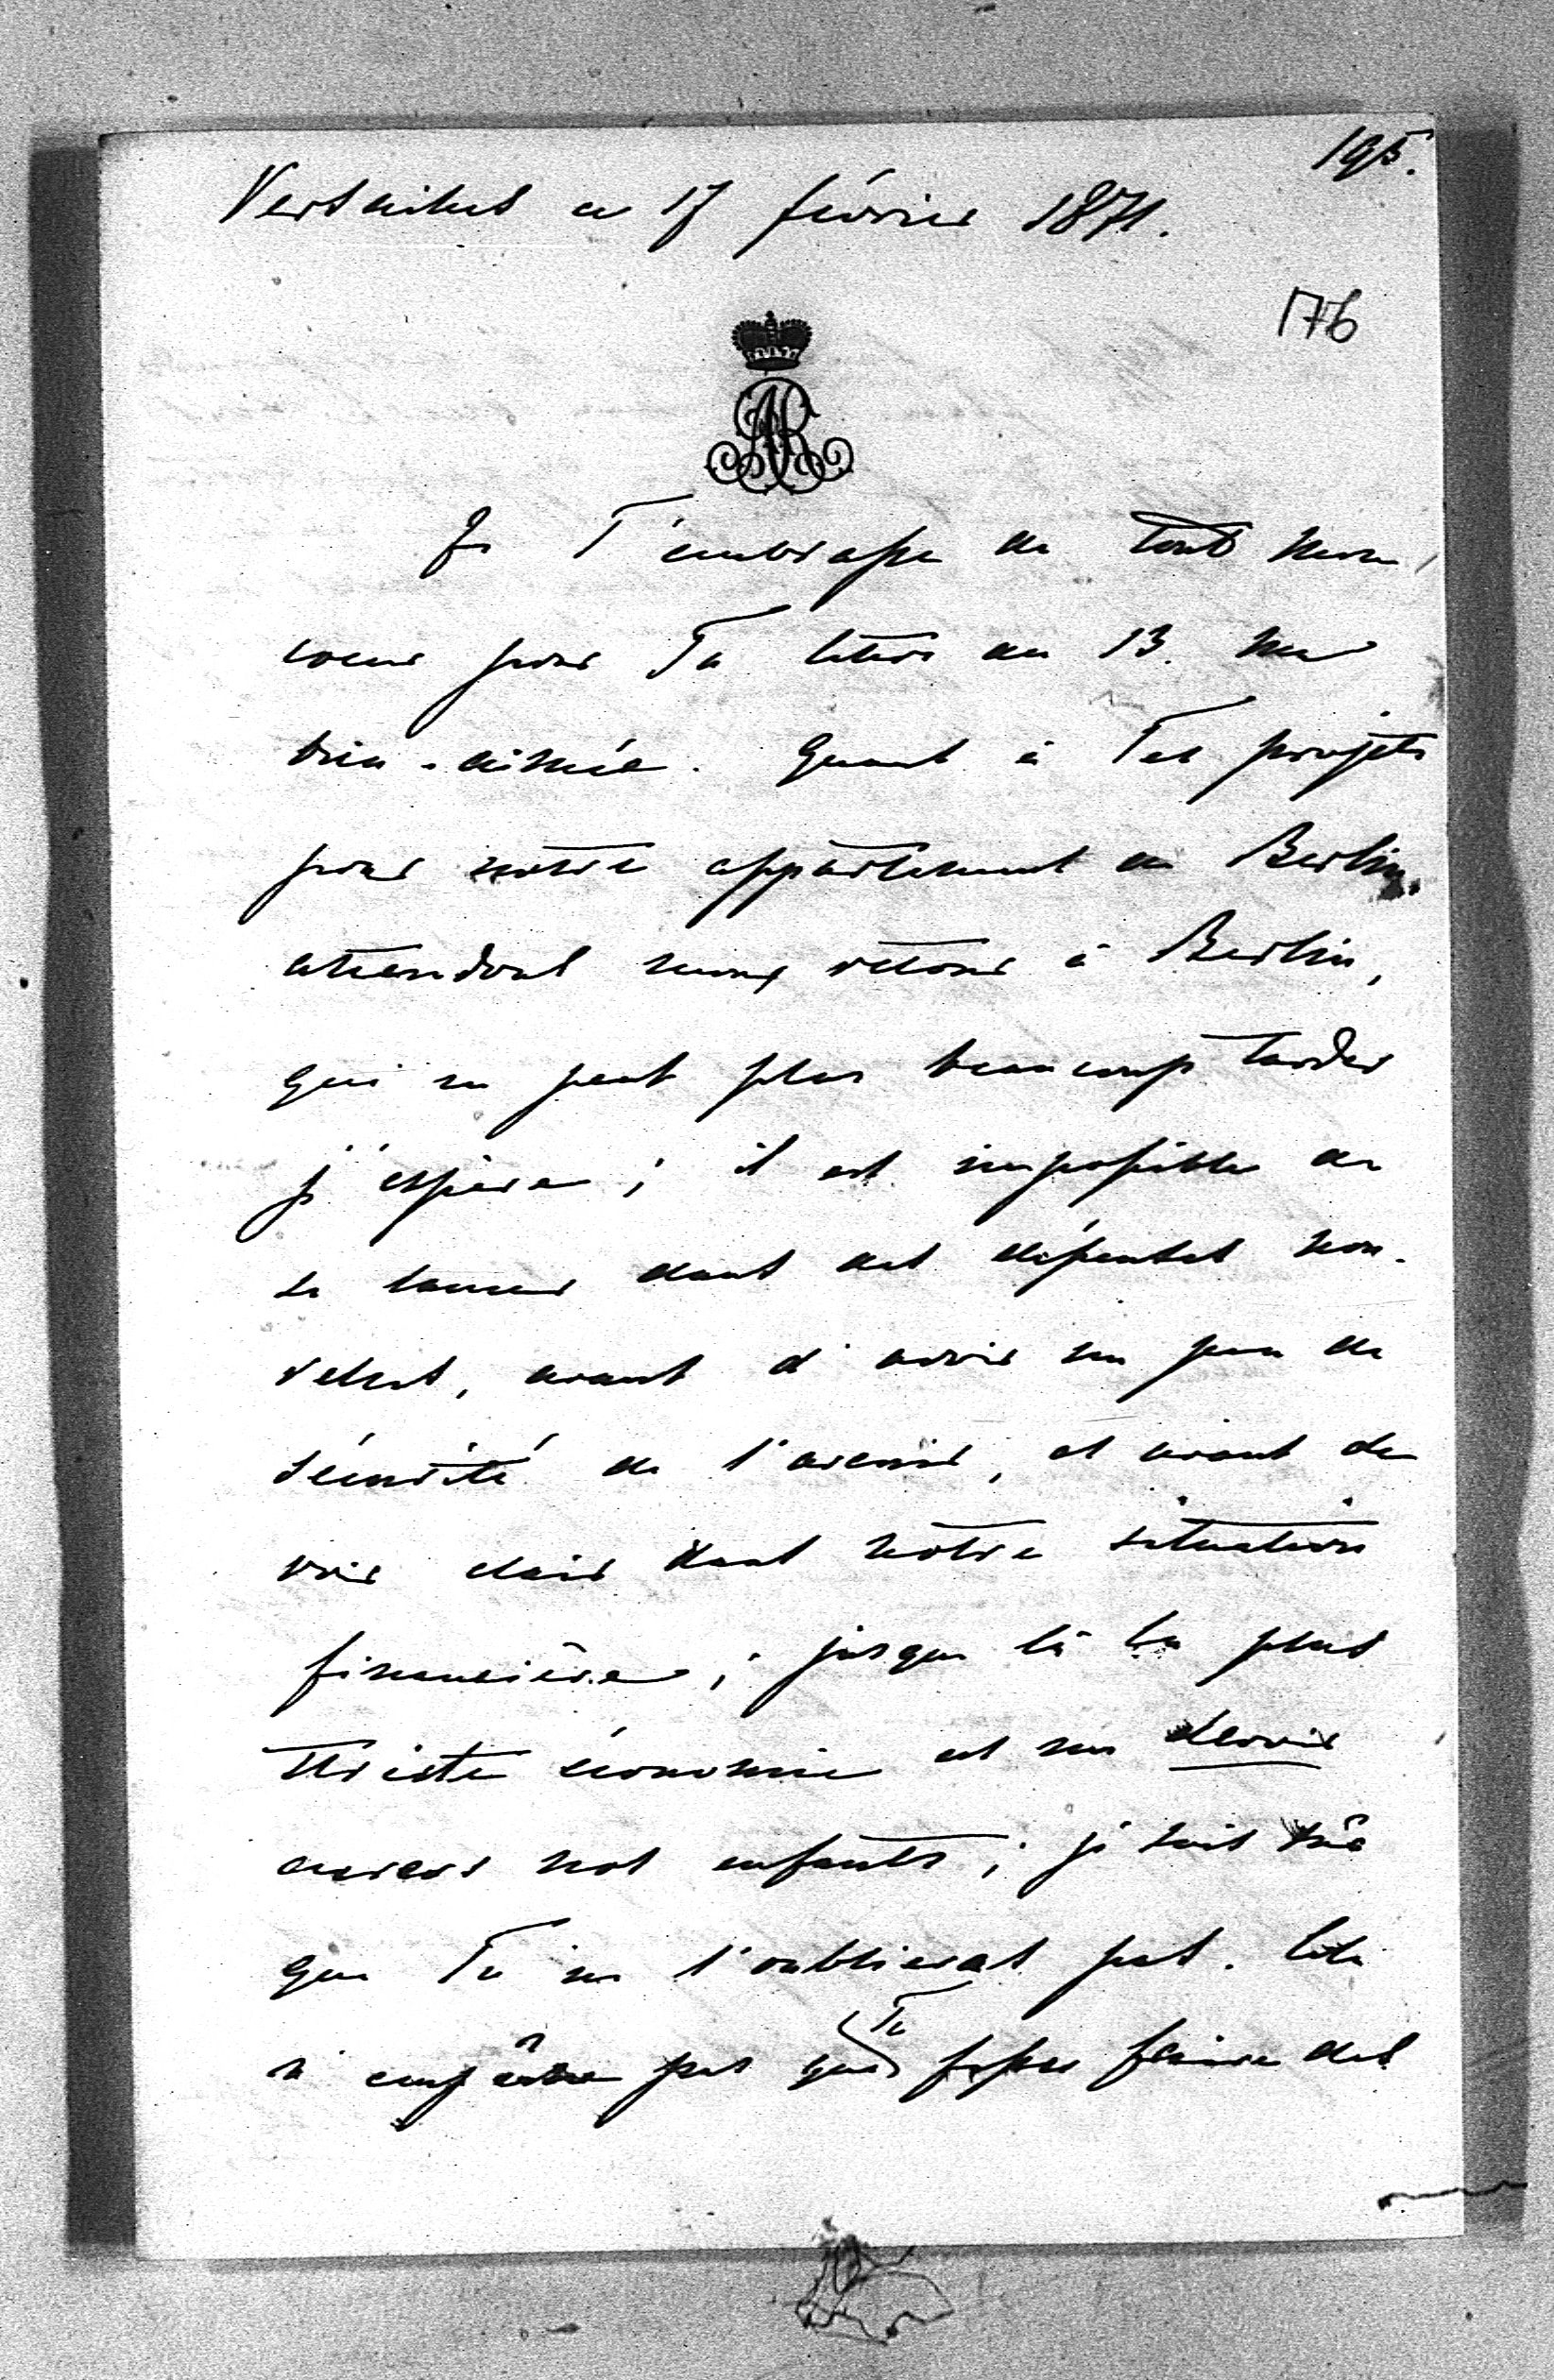 195.
Versailles ce 17 février 1871.
176
AR
Je T'embrasse de tout mon
coeur pour Ta lettre du 13. ma
bien-aimée. Quant à Tes projets
pour notre appartement de Berlin,
attendons mon retour à Berlin,
qui ne peut plus beaucoup tarder
j'espère; il est impossible de
se lancer dans des dépenses nou-
velles, avant d'avoir un peu de
sécurité de l'avenir, et avant de
voir clair dans nôtre situation
financière; jusque là la plus
stricte économie est un devoir
envers nos enfants; je suis sûr
que Tu ne l'oublieras pas. Cela
n'empêche pas que Tu fasses faire des